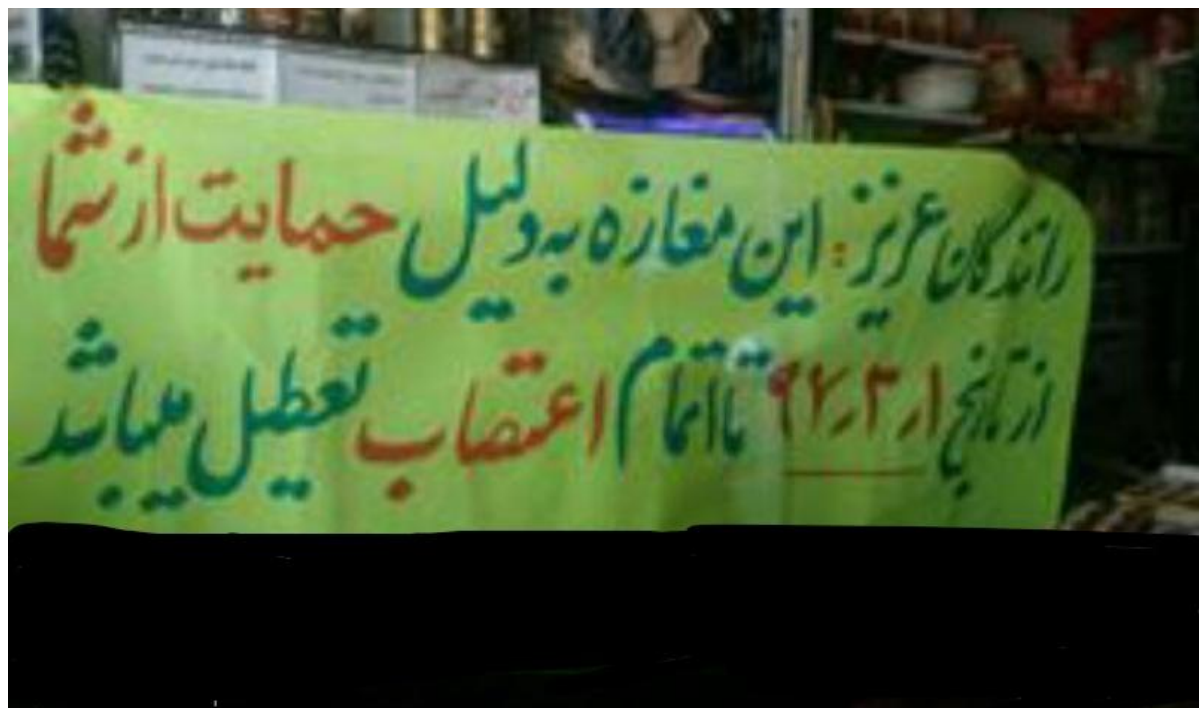 رانندگان عزیز: این مغازه به دلیل حمایت از شما
از تاریخ ۹۷٫۳٫۱ تا اتمام اعتصاب تعطیل میباشد